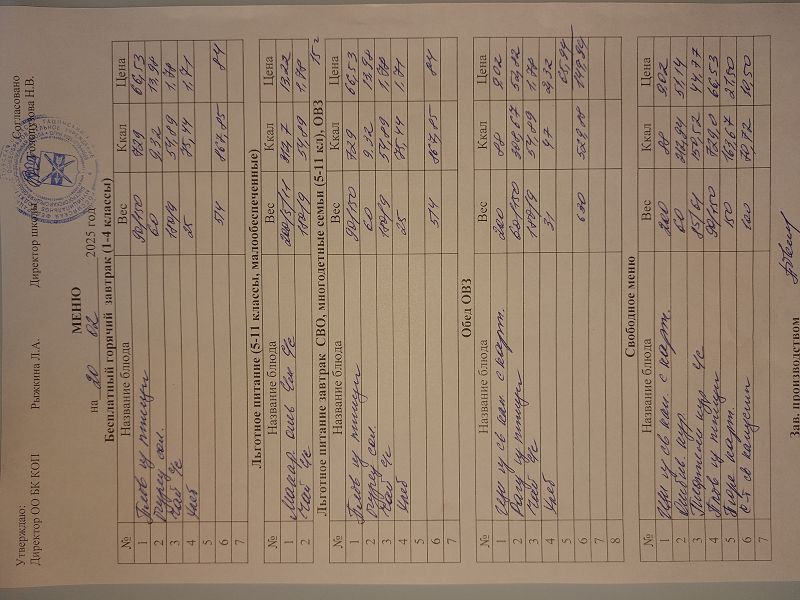 Утверждаю: Согласовано
Директор ОО БК КОП Рыжкина Л.А. Директор школы
МЕНЮ
на 20 02 2025 год
Бесплатный горячий завтрак (1-4 классы)
№ Название блюда Вес Ккал Цена
1 Плов из птицы 90/150 729 66,53
2 Огурец сол. 60 9,32 13,98
3 Чай ч/с 180/9 54,89 1,78
4 Хлеб 25 75,44 1,71
5
6 514 867,85 84
7
Льготное питание (5-11 классы, малообеспеченные)
№ Название блюда Вес Ккал Цена
1 Макар. 200/5/11 13,22
2 Чай ч/с 180/9 54,89 1,78
15
Льготное питание завтрак СВО, многодетные семьи (5-11 кл), ОВЗ
№ Название блюда Вес Ккал Цена
1 Плов из птицы 90/150 729 66,53
2 Огурец сол. 60 9,32 13,98
3 Чай ч/с 180/9 54,89 1,78
4 Хлеб 25 75,44 1,71
5
6 514 867,85 84
7
Обед ОВЗ
№ Название блюда Вес Ккал Цена
1 Щи из св кап. с карт. 200 88 9,02
2 Рагу из птицы 60/150
3 Чай ч/с 180/9 54,89 1,78
4 Хлеб 31 97 2,32
5
6 630
7
8
Свободное меню
№ Название блюда Вес Ккал Цена
1 Щи из св кап. с карт. 200 88 9,02
2 60 212,94 51,14
3 44,77
4 Плов из птицы 90/150 729,0 66,53
5 Пюре карт. 150 163,67 27,50
6 С-т св капусты 100 70,72
7
Зав. производством